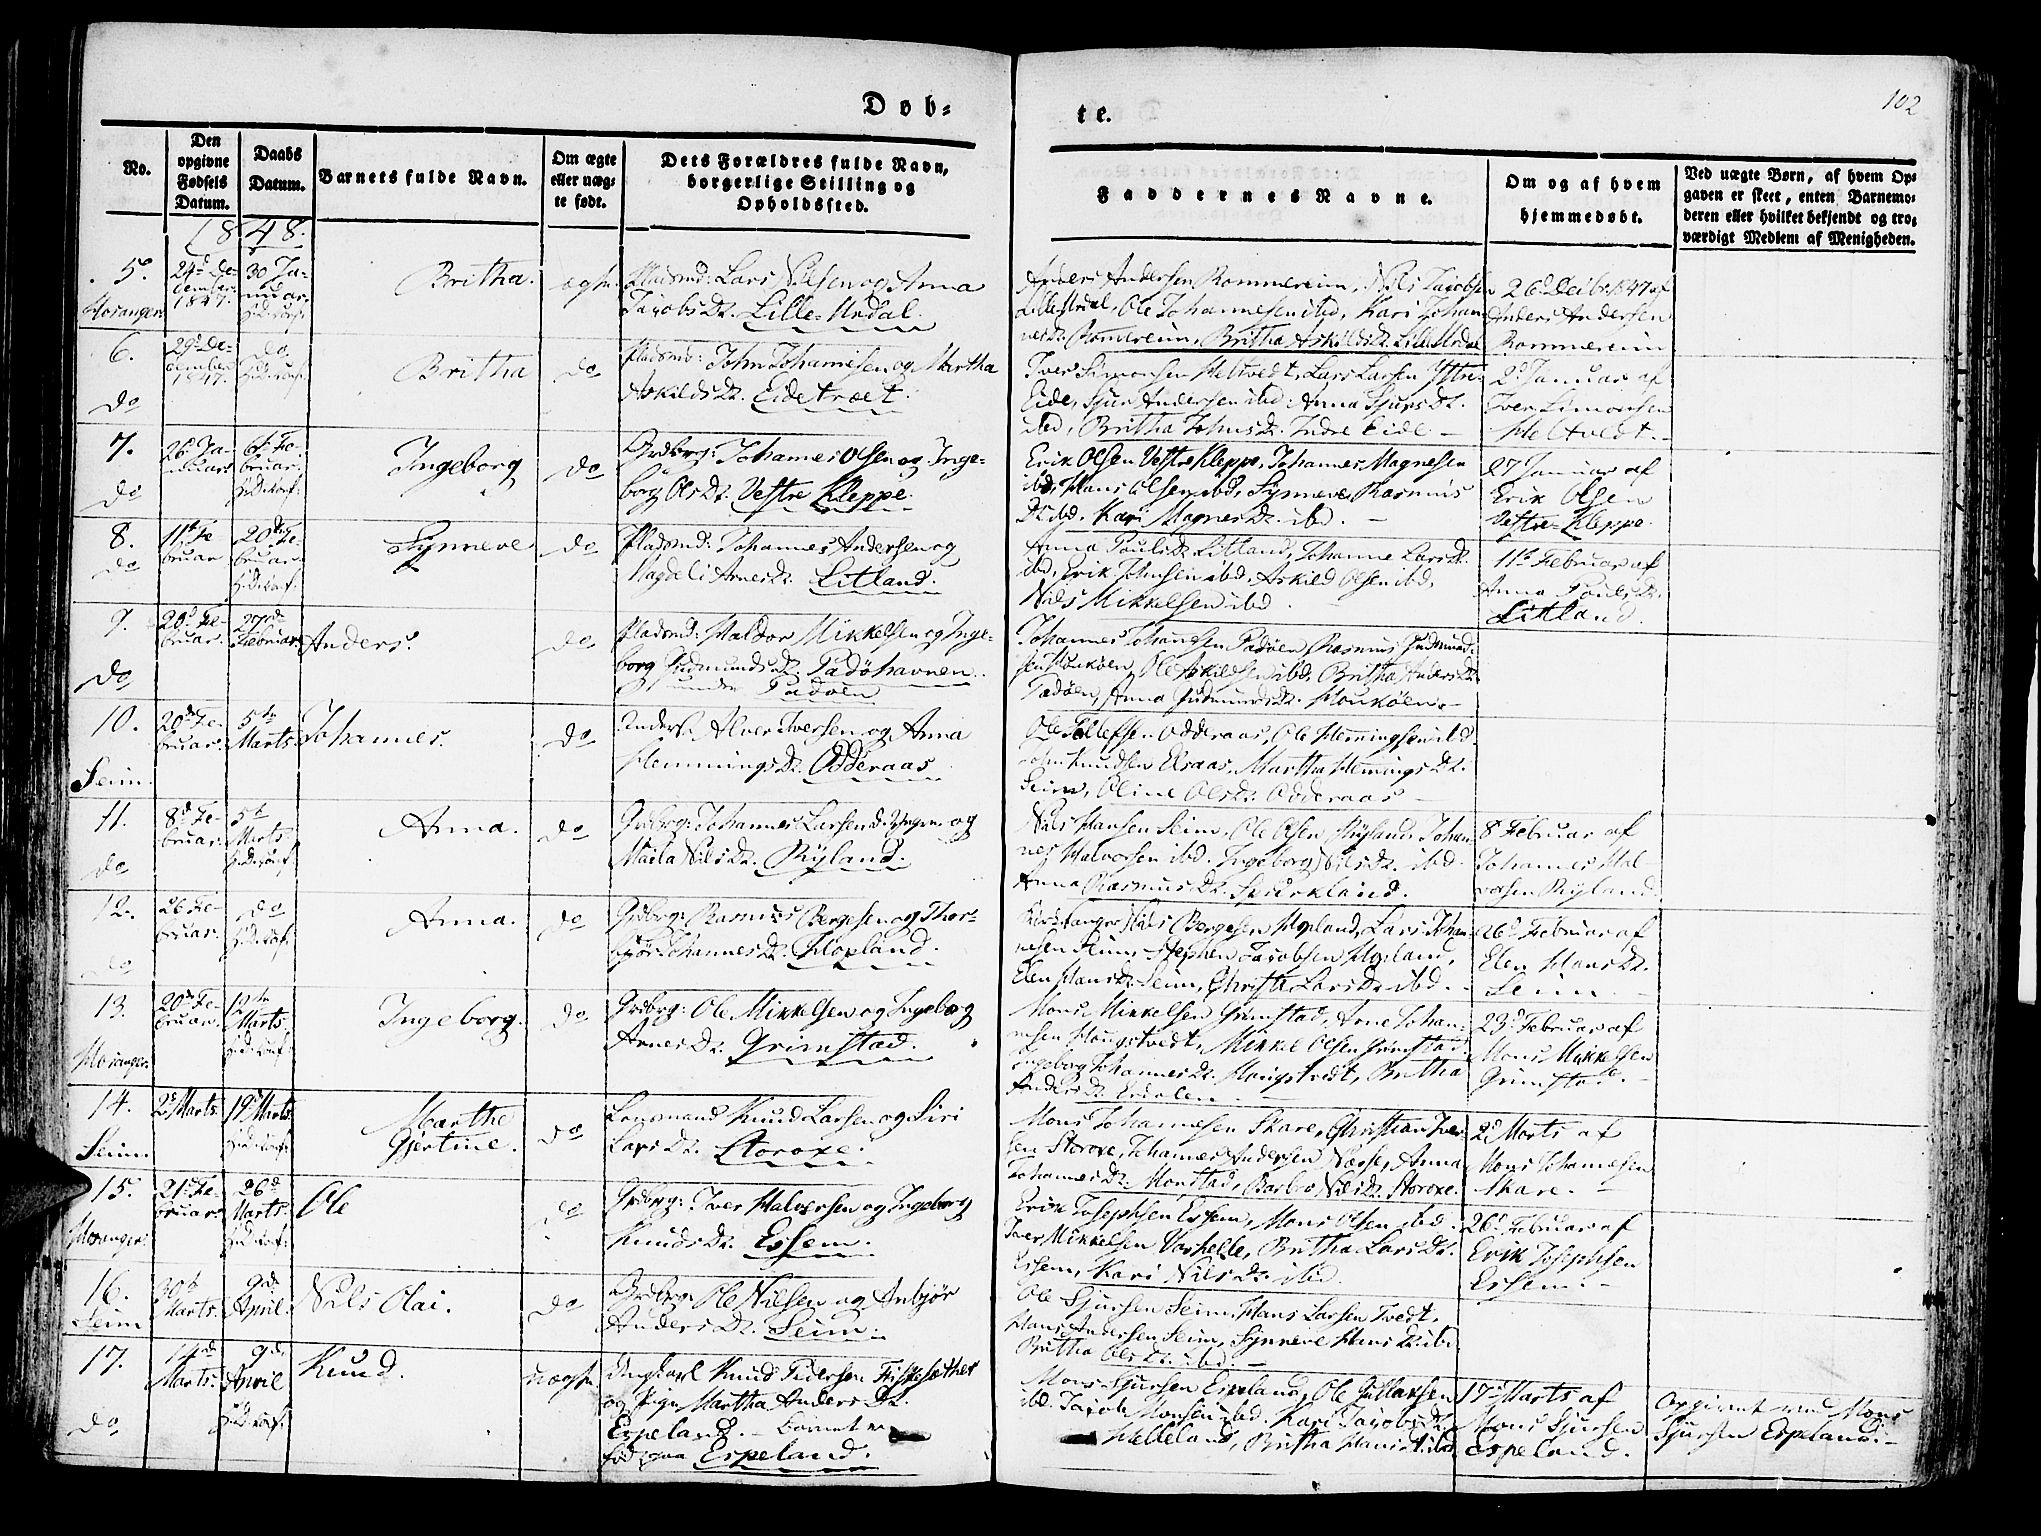 Døb-
te.
102
No.
Den opgivne Fødsels Datum.
Daabs Datum.
Barnets fulde Navn.
Om ægte eller uægte født.
Dets Forældres fulde Navn, borgerlige Stilling og Opholdssted.
Faddernes Navne.
Om og af hvem hjemmedøbt.
Ved uægte Børn, af hvem Opgaven er skeet, enten Barnemoderen eller hvilket bekjendt og troværdigt Medlem af Menigheden.
1848.
5.
24d December 1847.
30 Januar
Britha.
ægte
Pladsmd: Lars Nilsen og Anna
Jacobs Dr. Lille-Urdal.
Anders Andersen Rommereim, Nils Jacobsen
Lille Urdal, Ole Johannesen ibd, Kari Johan-
nes Dr. Romereim, Britha Askilds Dr. Lille Urdal
26d Decbr 1847 af
Anders Andersen
Rommereim
6.
do
29d December 1847.
do
Britha
do
Pladsmd: John Johannesen og Martha
Askilds Dr. Eidetræet.
Iver Simonsen Heltvedt, Lars Larsen Ystre-
Eide, Sjur Andersen ibd. Anna Sjurs Dr.
ibd, Britha Johns Dr. Indre Eide
2d Januar af
Iver Simonsen
Heltvedt.
7.
do
26d Januar
6te Februar.
Ingeborg
do
Grdbrg: Johannes Olsen og Inge-
borg Ols Dr. Vestre Kleppe.
Erik Olsen Vestre Kleppe, Johannes Magnesen
ibd, Hans Olsen ibd, Synneve Rasmus
Dr ibd. Kari Magnes Dr. ibd.
27 Januar af
Erik Olsen
Vestre-Kleppe.
8.
do
11te Februar
20de Februar
Synneve
do
Pladsmd: Johannes Andersen og
Magdeli Arnes Dr. Litland.
Anna Pouls Dr Litland, Johanne Lars Dr.
ibd, Erik Johnsen ibd, Askild Olsen ibd,
Nils Mikkelsen ibd.
11te Februar af
Anna Pouls Dr.
Litland.
9.
do
20d Februar.
27de Februar
Anders.
do
Pladsmd: Haldor Mikkelsen og Inge-
borg Gudmunds Dr Padøhavnen.
under Padøen
Johannes Johannesen Padøen, Rasmus Gudmund-
sen Houkøen, Ole Askildsen ibd, Britha Anders Dr.
Padøen, Anna Gudmunds Dr. Houkøen.
10.
Seim.
20de Februar.
5te Marts
Johannes.
do
Alver Iversen og Anna
Hemmings Dr. Odderaas
Ole Tollefsen Odderaas, Ole Hemmingsen ibd.
John Knudsen Elraas, Martha Hemmings Dr.
Seim, Oline Ols Dr. Odderaas
11.
do
8d Februar.
5te Marts
Anna.
do
Grdbrg: Johannes Larsen d. Yngre og
Marta Nils Dr. Ryland.
Nils Hansen Seim, Ole Olsen Ryland, Johan-
nes Halvorsen ibd. Ingeborg Nils Dr. ibd.
Anna Rasmus Dr. Spurkland.
8 Februar af
Johannes Hal-
vorsen Ryland.
12.
do
26 Februar.
do
Anna.
do
Grdbrg: Rasmus Børgesen og Thor-
bjør Johannes Dr. Hopland.
Nils Børgesen Hopland, Lars Johan-
nesen Seim, Stephen Jacobsen Hopland,
Elen Hans Dr. Seim, Christi Lars Dr. ibd.
26d Februar af
Elen Hans Dr.
Seim.
13.
Hosanger.
20de Februar.
12te Marts.
Ingeborg.
do
Grdbrg: Ole Mikkelsen og Ingeborg
Arnes Dr. Grimstad.
Mons Mikkelsen Grimstad, Arne Johan-
nesen Hougstvedt, Mikkel Olsen Grimstad
Ingeborg Johannes Dr. Hougstvedt, Britha
Anders Dr. Eidalen
23d Februar af
Mons Mikkelsen
Grimstad.
14.
Seim.
2d Marts.
19d Marts.
Marthe
Gjertine.
do
Lensmand Knud Larsen og Siri
Lars Dr. Storoxe.
Mons Johannesen Skare, Christian Iver-
sen Storoxe, Johannes Andersen Næsse, Anna
Johannes Dr. Monstad, Barbro Nils Dr. Storoxe.
2d Marts af
Mons Johannesen
Skare.
15.
Hosanger.
21d Februar
26d Marts
Ole
do
Grdbrg: Iver Halversen og Ingeborg
Knuds Dr. Essem.
Erik Josephsen Essem, Mons Olsen ibd
Iver Mikkelsen Vashelle, Britha Lars Dr.
Essem, Kari Nils Dr. ibd.
26d Februar af
Erik Josephsen
Essem.
16.
Seim
30d Marts.
9de April
Nils Olai.
do
Grdbrg: Ole Nilsen og Anbjør
Anders Dr. Seim.
Ole Sjursen Seim, Hans Larsen Tvedt,
Hans Andersen Seim, Synneve Hans Dr. ibd
Britha Ols Dr. ibd.
17.
do
14de Marts.
9de April
Knud.
uægte
Ungkarl Knud Pedersen Fiskesæther
og Pige Martha Anders Dr.
Espeland. Barnet er
fød paa Espeland.
Mons Sjursen Espeland, Ole
ibd. Jacob Monsen ibd. Kari Jacobs Dr.
Helleland, Britha Hans Dr ibd
17d Marts af
Mons Sjursen
Espeland.
Opgivet ved Mons
Sjursen Espeland.